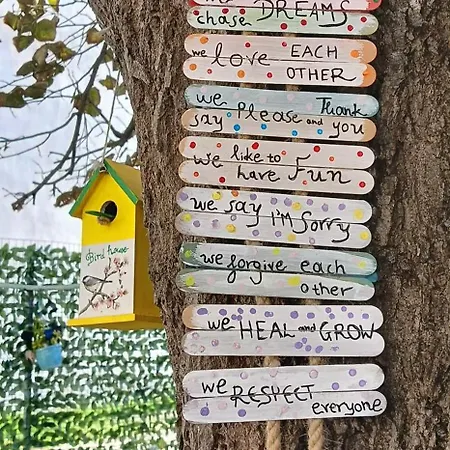 chase DREAMS
we love EACH
OTHER
we Please and Thank
say you
we like to
have Fun
we say I'm Sorry
we forgive each
other
we HEAL and GROW
we RESPECT
everyone
Bird house